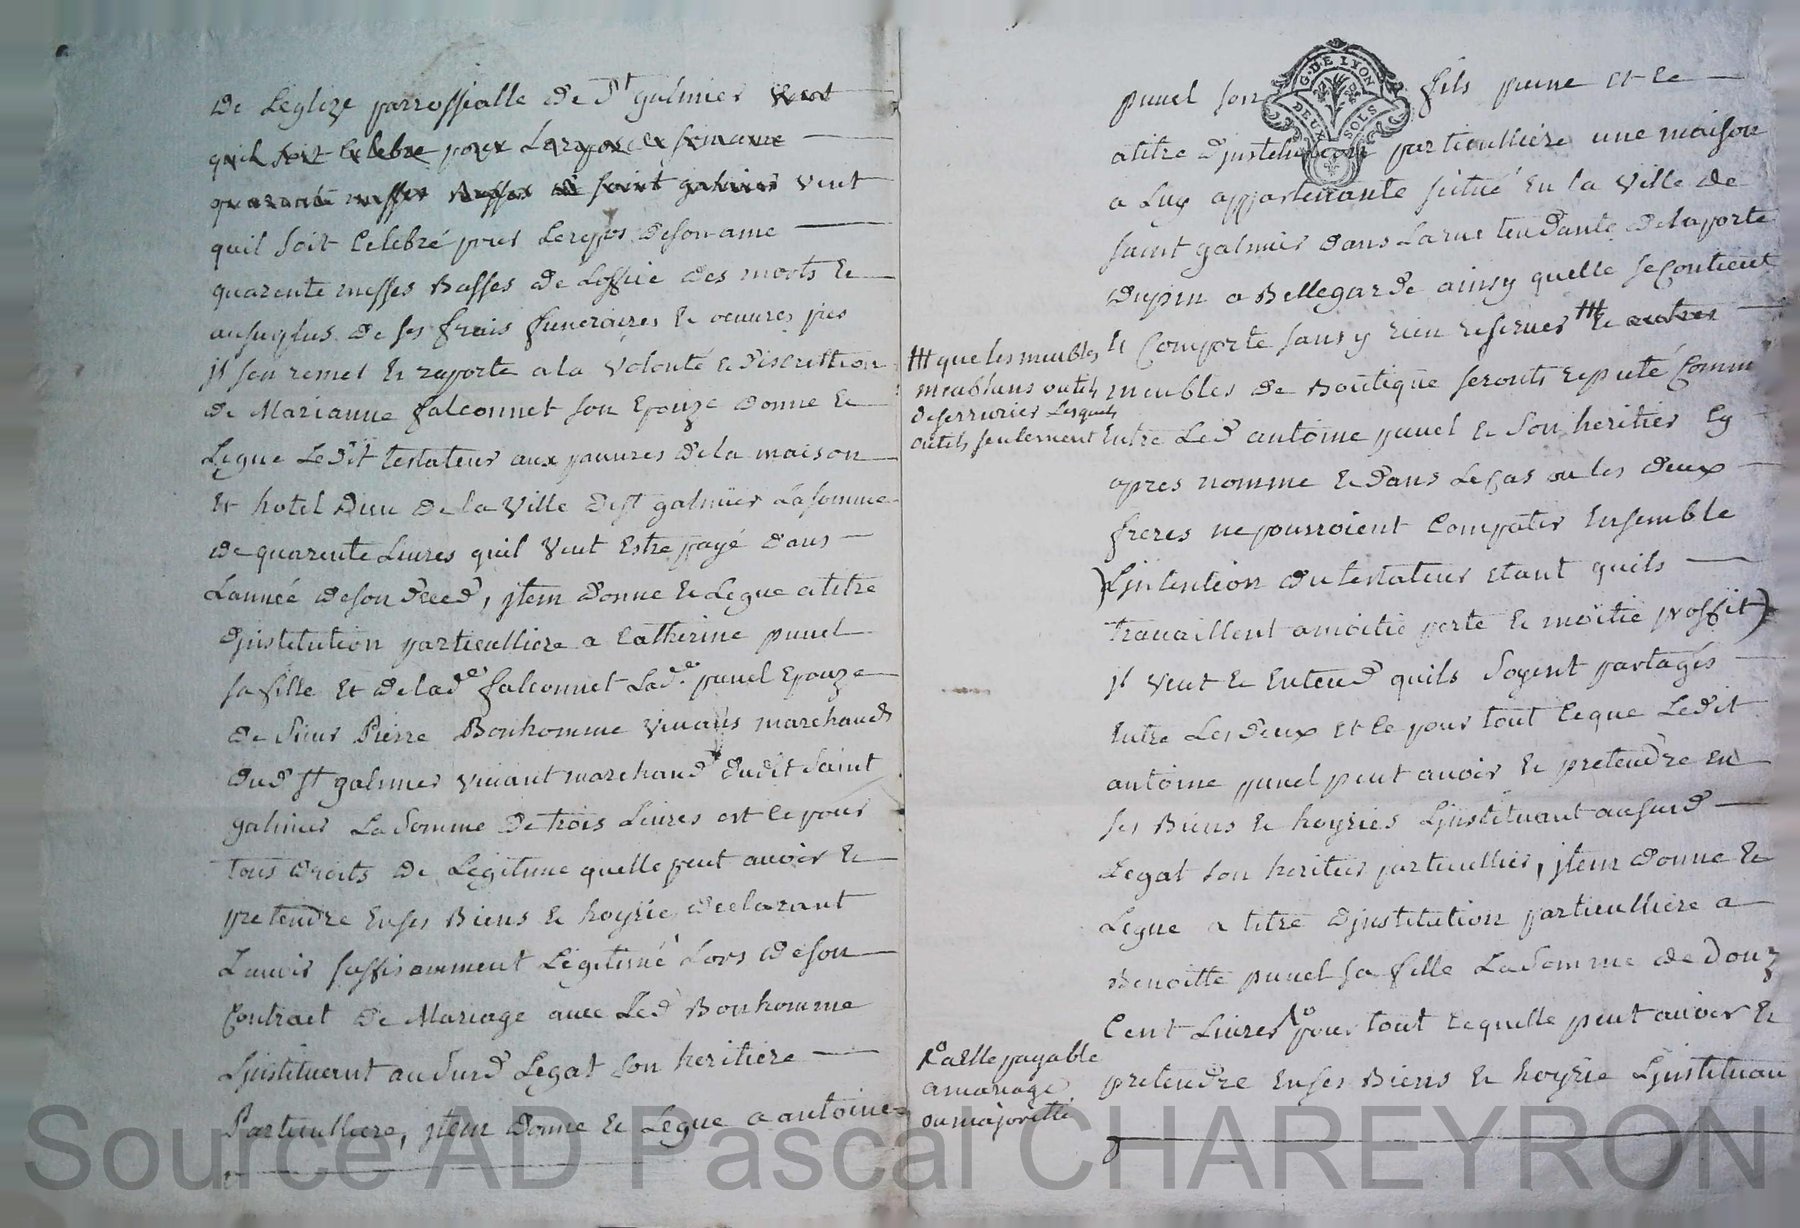 de Léglize parrossialle de St galmier veut
quil soit celebré pour Lerepos de somame
quarante messes Basses de saint galmier veut
quil soit Celebré pour Lerepos desoname
quarente messes Basses de Loffice des morts &
ausurplus de ses frais funeraires & oeuvres pies
jl sen remet & raporte a la volonté & discrettion
de Marianne falconnet son Epouze donne &
Legue Ledit testateur aux pauvres dela maison
et hotel Dieu de la Ville dest galmier Lasomme
de quarente Livres quil veut Estre payé dans
Lannéé deson deced, jtem donne & Legue atitre
djnstitution particulliere a Catherine punel
sa fille et delade falconnet Lade punel Epouze
de sieur Pierre Bonhomme vivants marchands
dud St galmier vivant marchand dudit saint
galmier La somme de trois Livres et ce pour
tous droits de Legitime quelle peut avoir &
pretendre Enses Biens & hoyrie, declarant
Lavoir suffisamment Legitimé Lors deson
Contract de Mariage avec Led Bonhomme
Ljnstituant ausurd Legat son heritiere
Particulliere, jtem donne & Legue a antoine
punel son fils puine et ce
atitre djnstitution particulliere une maison
a Luy appartenante situé En la Ville de
saint galmier dans Larue tendante delaporte
dupin a Bellegarde ainsy quelle seContient
& Comporte sans y rien reserver # & autres
meubles de Boutique seronts reputé Commun
Entre Led antoine punel & son heritier Cy
apres nomme & dans Lecas ou les deux
freres ne pourroient Compatir Ensemble
Ljntention du testateur etant quils
travaillent amoitié perte & moitié proffit
jl veut & Entend quils soyent partagés
Entre Les deux et ce pour tout ceque Ledit
antoine punel peut avoir & pretendre en
ses Biens & hoyries Ljnstituant ausurd
Legat son heritier particullier, jtem donne &
Legue a titre djnstitution particulliere a
Benoitte punel sa fille La somme de Douz
Cent Livres pour tout cequelle peut avoir &
pretendre Enses Biens & hoyrie Ljnstituan
# que les meubles
meublans outils
deserrurier Lesquels
outils seulement
aElle payable
amariage
oumajorité
G. DE LYON
DEUX SOLS
Source AD Pascal CHAREYRON